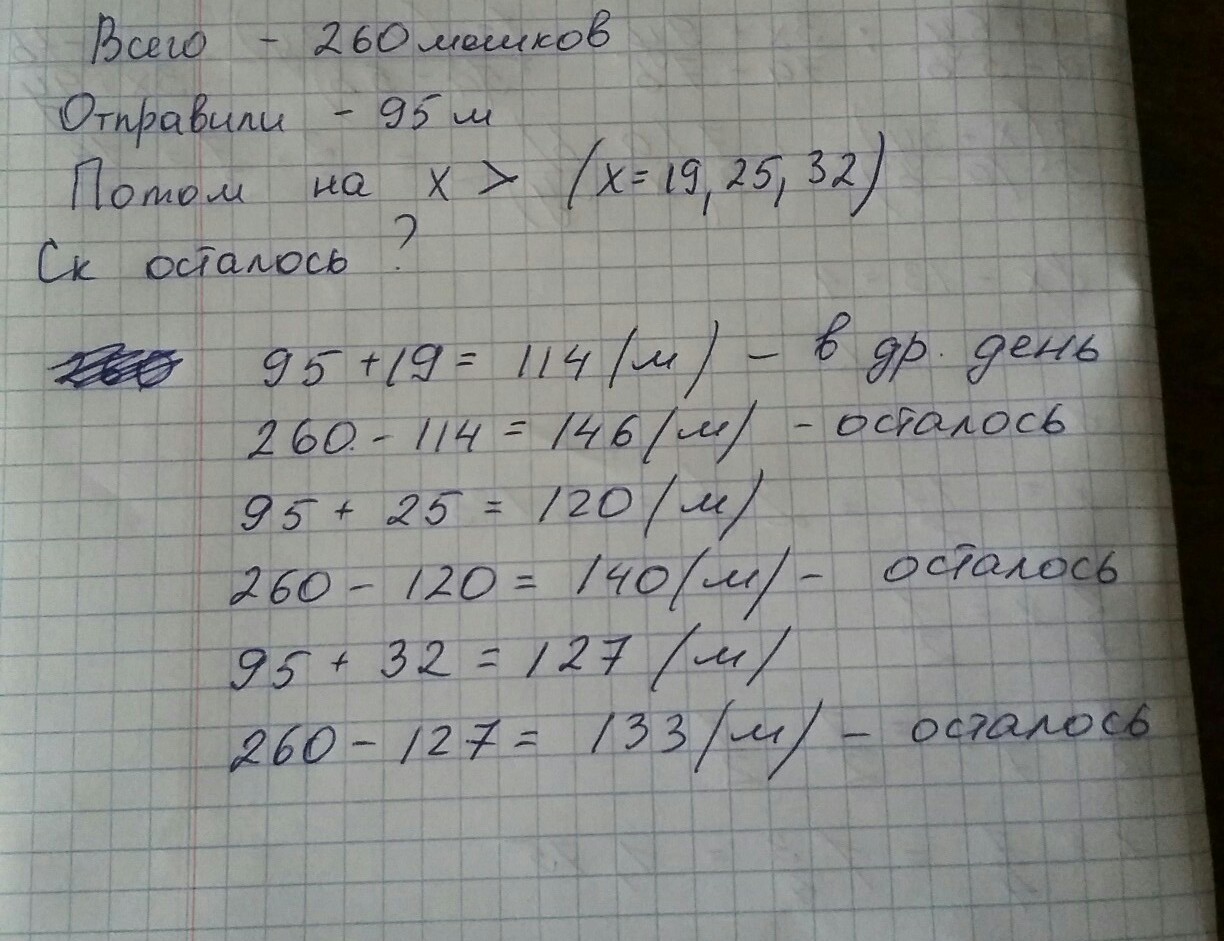 Всего - 260 мешков
Отправили - 95 м
Потом на х > (х=19, 25, 32)
Ск осталось ?
95 + 19 = 114 (м) - в др. день
260 - 114 = 146 (м) - осталось
95 + 25 = 120 (м)
260 - 120 = 140 (м) - осталось
95 + 32 = 127 (м)
260 - 127 = 133 (м) - осталось